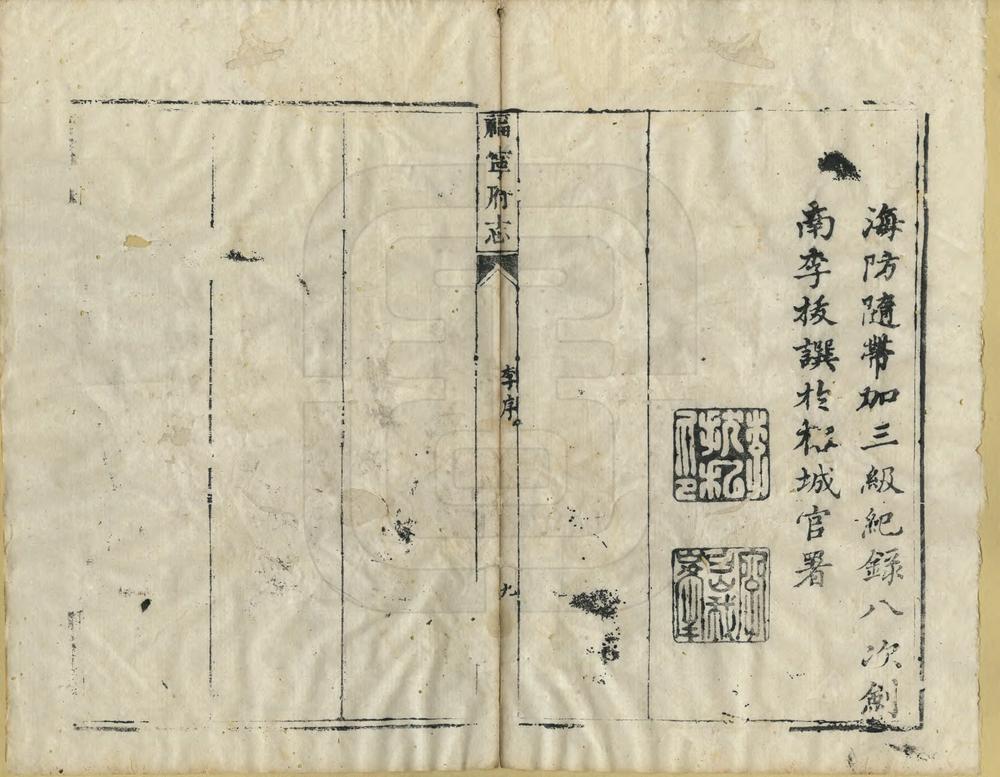 海防隨帶加三級紀錄八次劍
南李拔譔於松城官署
福寧府志
李序
九